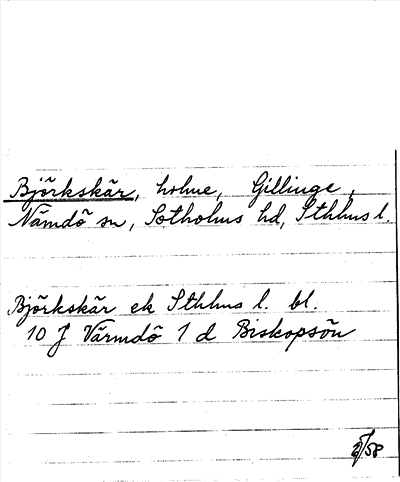 Björkskär, holme, Gillinge,
Nämdö sn, Sotholms hd, Sthlms l.
Björkskär ek Sthlms l. bl.
10 J Värmdö 1 d Biskopsön
/58